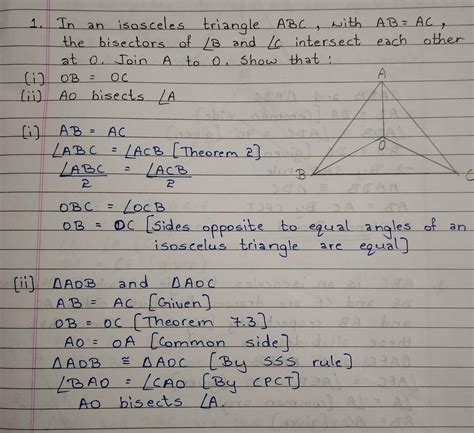 1. In an isosceles triangle ABC, with AB = AC,
the bisectors of ∠B and ∠C intersect each other
at O. Join A to O. Show that :
(i) OB = OC
(ii) AO bisects ∠A
A
O
B
C
(i) AB = AC
∠ABC = ∠ACB [Theorem 2]
∠ABC/2 = ∠ACB/2
OBC = ∠OCB
OB = OC [Sides opposite to equal angles of an
isoscelus triangle are equal]
(ii) ΔAOB and ΔAOC
AB = AC [Given]
OB = OC [Theorem 7.3]
AO = OA [Common side]
ΔAOB ≅ ΔAOC [By SSS rule]
∠BAO = ∠CAO [By CPCT]
AO bisects ∠A.